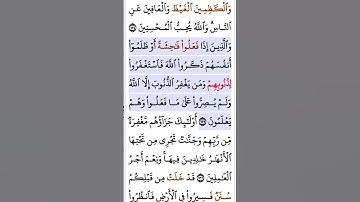 وَٱلْكَٰظِمِينَ ٱلْغَيْظَ وَٱلْعَافِينَ عَنِ
ٱلنَّاسِ وَٱللَّهُ يُحِبُّ ٱلْمُحْسِنِينَ
وَٱلَّذِينَ إِذَا فَعَلُوا۟ فَٰحِشَةً أَوْ ظَلَمُوٓا۟
أَنفُسَهُمْ ذَكَرُوا۟ ٱللَّهَ فَٱسْتَغْفَرُوا۟
لِذُنُوبِهِمْ وَمَن يَغْفِرُ ٱلذُّنُوبَ إِلَّا ٱللَّهُ
وَلَمْ يُصِرُّوا۟ عَلَىٰ مَا فَعَلُوا۟ وَهُمْ
يَعْلَمُونَ أُو۟لَٰٓئِكَ جَزَآؤُهُم مَّغْفِرَةٌ
مِّن رَّبِّهِمْ وَجَنَّٰتٌ تَجْرِى مِن تَحْتِهَا
ٱلْأَنْهَٰرُ خَٰلِدِينَ فِيهَا وَنِعْمَ أَجْرُ
ٱلْعَٰمِلِينَ قَدْ خَلَتْ مِن قَبْلِكُمْ
سُنَنٌ فَسِيرُوا۟ فِى ٱلْأَرْضِ فَٱنظُرُوا۟